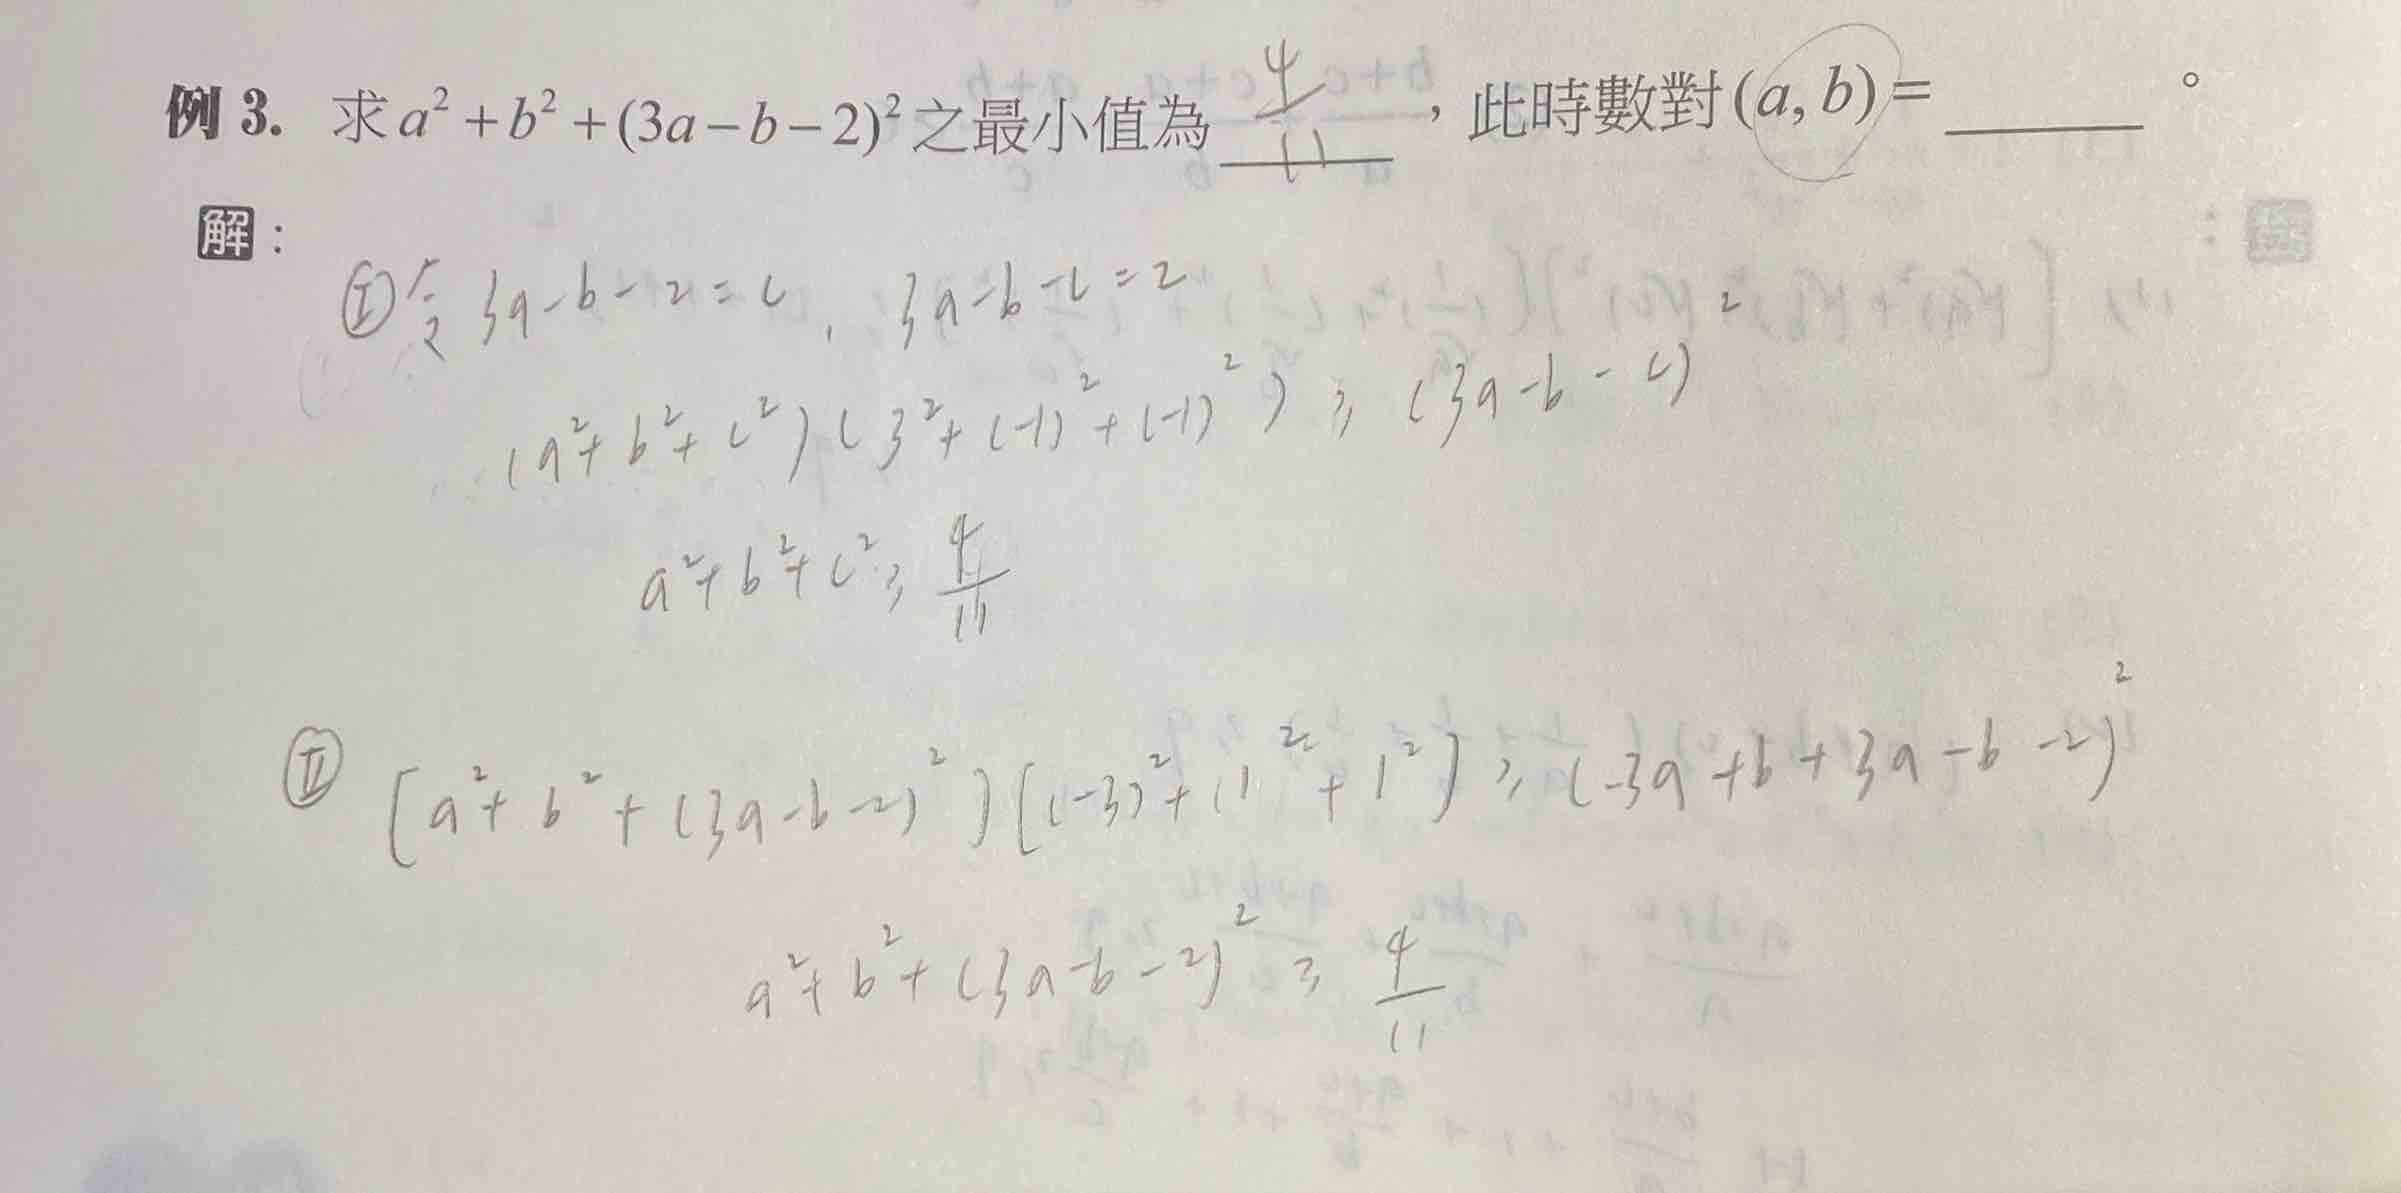 例 3. 求 a² + b² + (3a − b − 2)² 之最小值為 4/11 ，此時數對 (a, b) = ______ 。
解：
Ⓘ 令 3a-b-2=c , 3a-b-c=2
(a²+b²+c²)(3²+(-1)²+(-1)²) ≥ (3a-b-c)²
a²+b²+c² ≥ 4/11
Ⅱ [a²+b²+(3a-b-2)²][(-3)²+(1²+1²] ≥ (-3a+b+3a-b-2)²
a²+b²+(3a-b-2)² ≥ 4/11